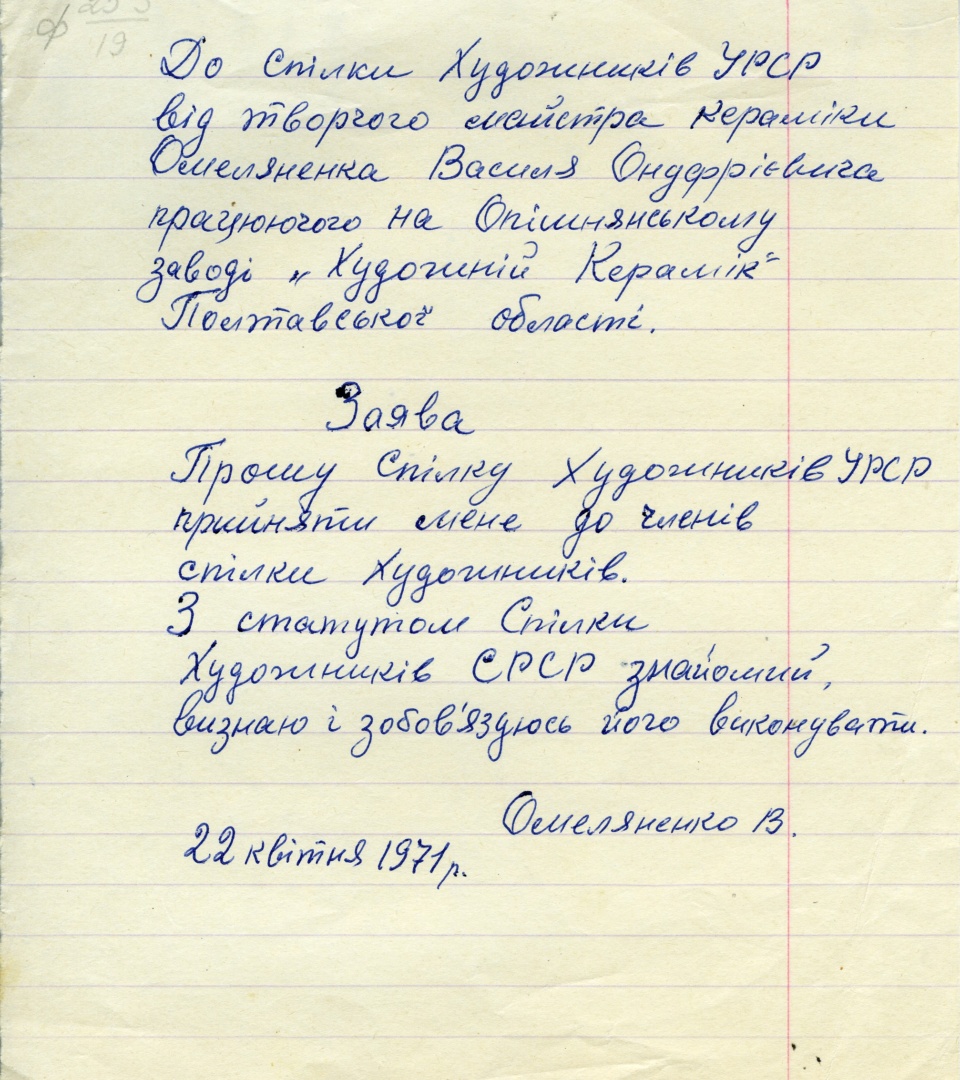 19
До Спілки Художників УРСР
від творчого майстра кераміки
Омеляненка Василя Онуфрієвича
працюючого на Опішнянському
заводі „Художній Керамік“
Полтавської області.
Заява
Прошу Спілку Художників УРСР
прийняти мене до членів
спілки Художників.
З статутом Спілки
Художників СРСР знайомий,
визнаю і зобов'язуюсь його виконувати.
Омеляненко В.
22 квітня 1971 р.